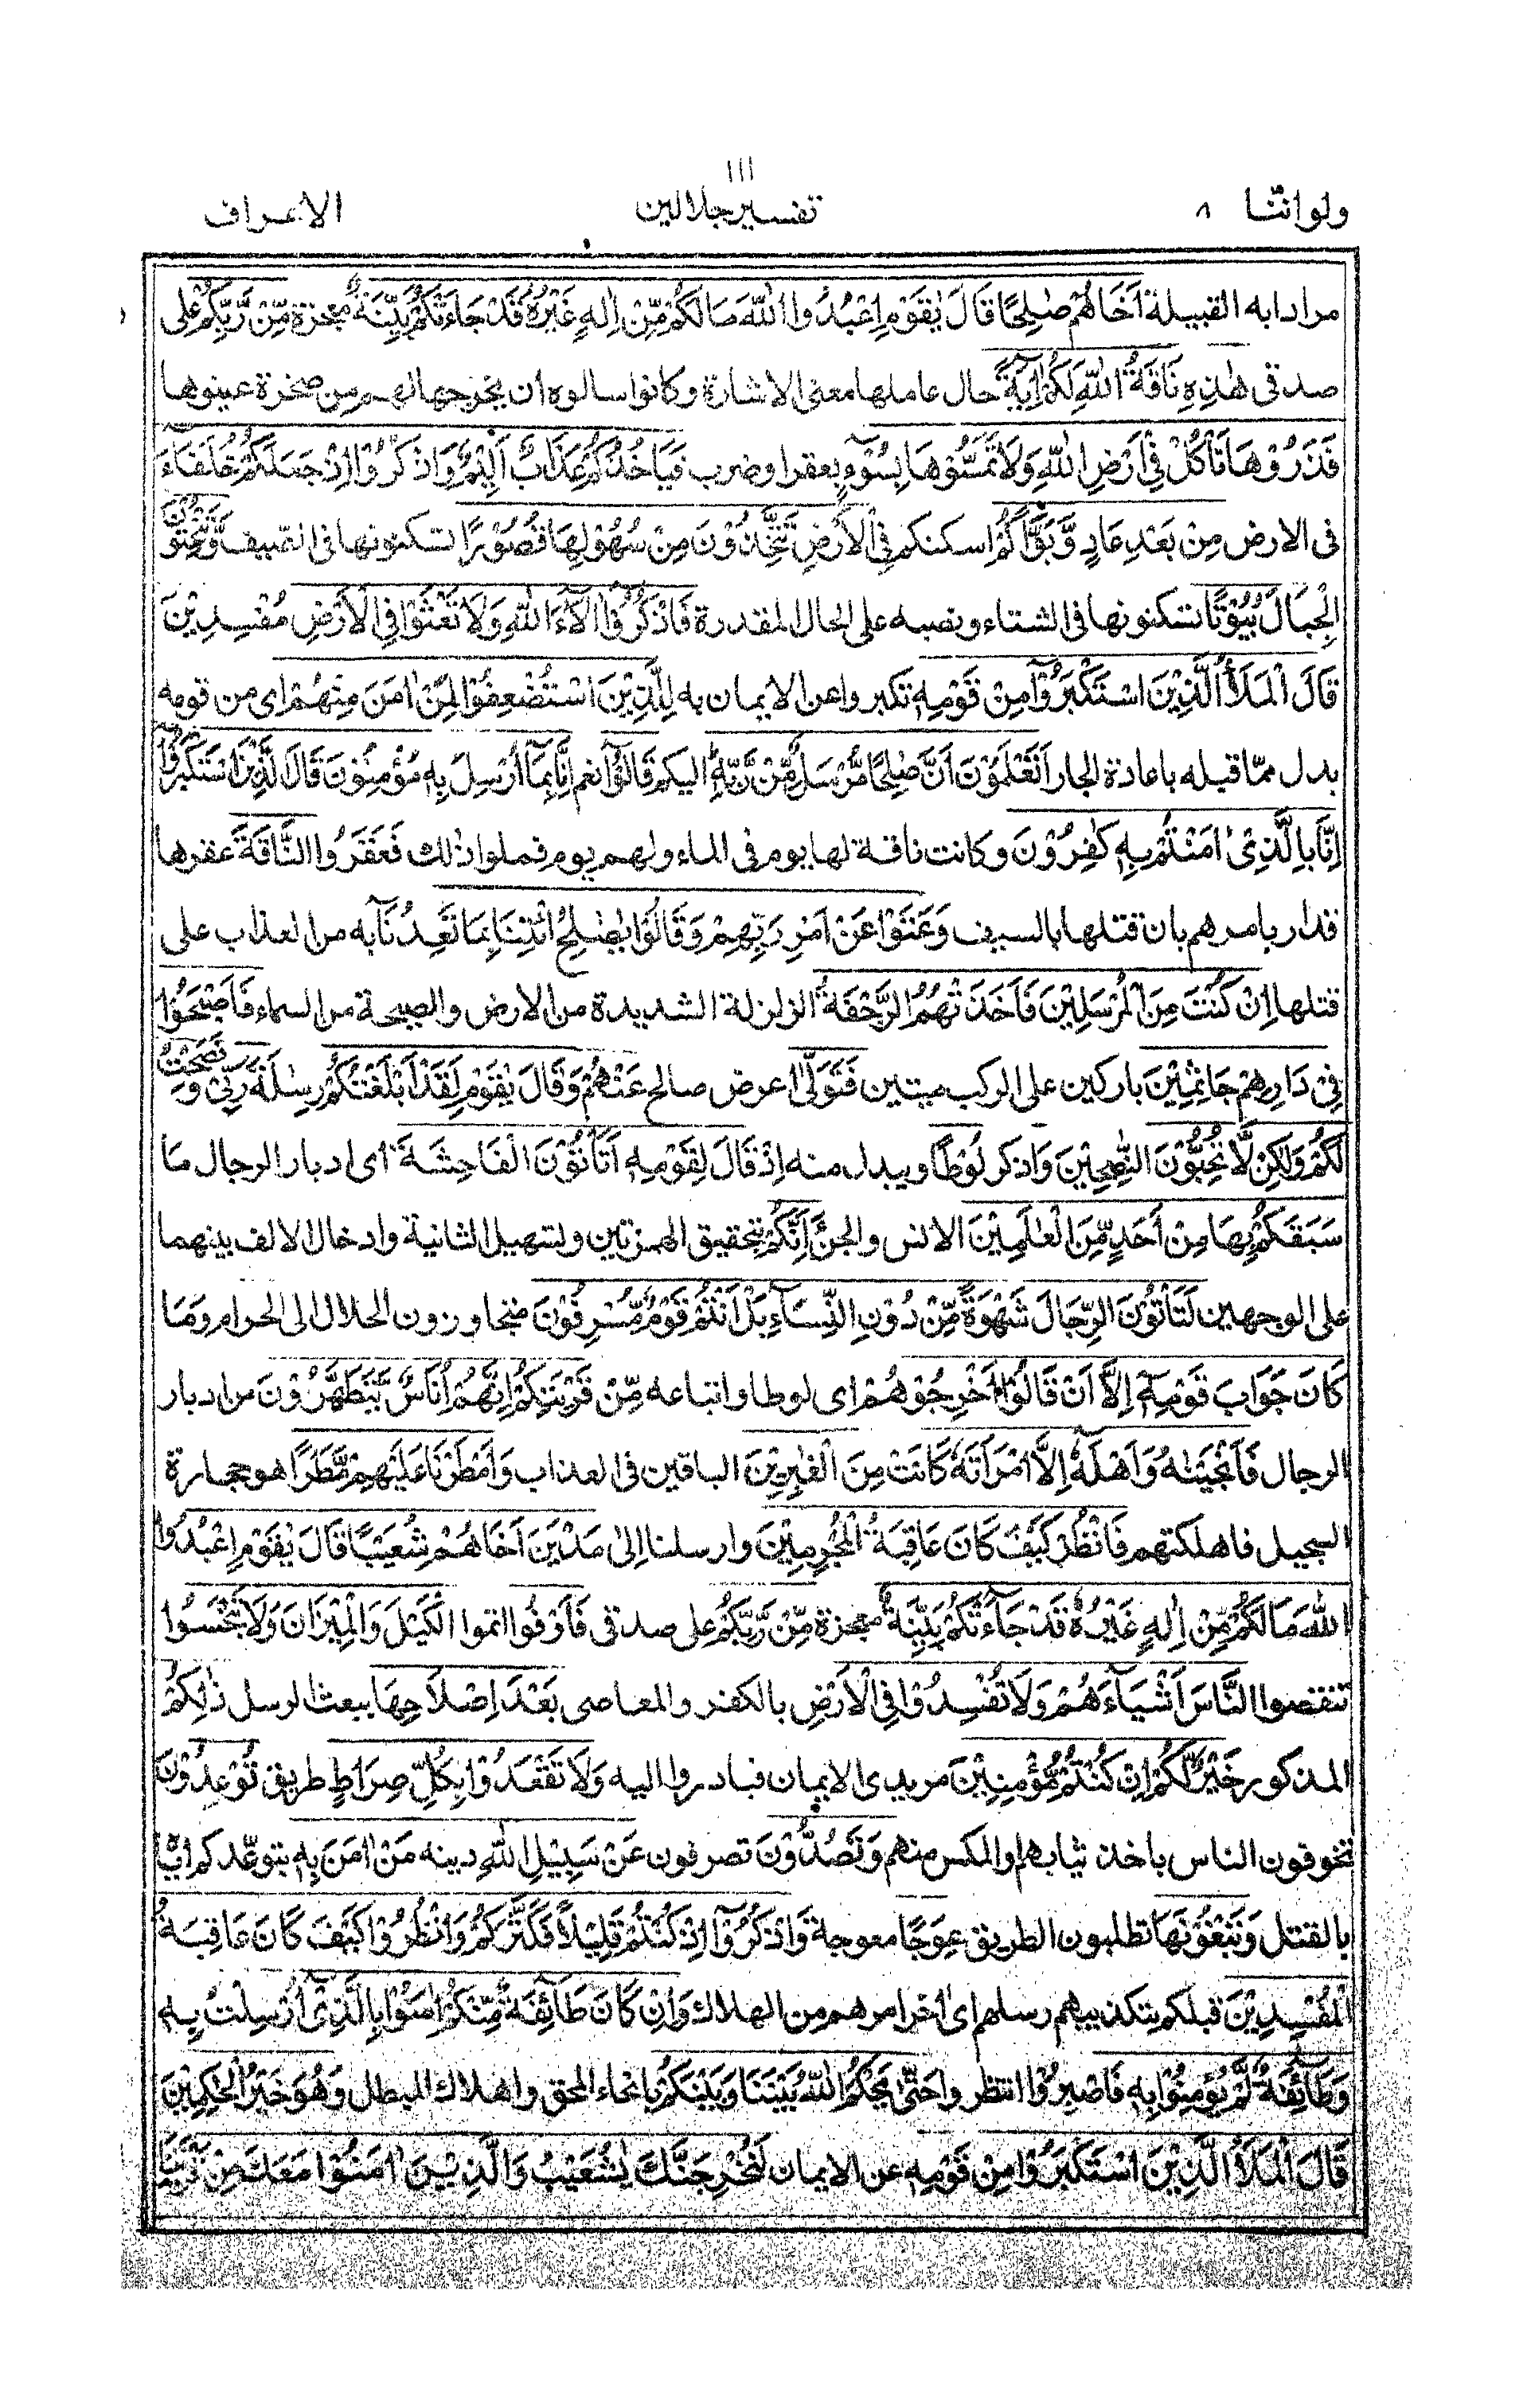 ١١١
ولو اننا ٨ تفسير جلالين الاعراف
مرادا به القبيلة اَخَاهُمْ صٰلِحًا قَالَ يٰقَوْمِ اعْبُدُوا اللّٰهَ مَا لَكُمْ مِّنْ اِلٰهٍ غَيْرُهٗ قَدْ جَاءَتْكُمْ بَيِّنَةٌ معجزة مِّنْ رَّبِّكُمْ على
صدقى هٰذِهٖ نَاقَةُ اللّٰهِ لَكُمْ اٰيَةً حال عاملها معنى الاشارة وكانوا سالوه ان يخرجها لهم من صخرة عينوها
فَذَرُوْهَا تَاْكُلْ فِيْ اَرْضِ اللّٰهِ وَلَا تَمَسُّوْهَا بِسُوْٓءٍ بعقر او ضرب فَيَاْخُذَكُمْ عَذَابٌ اَلِيْمٌ وَاذْكُرُوْا اِذْ جَعَلَكُمْ خُلَفَآءَ
فى الارض مِنْ بَعْدِ عَادٍ وَّبَوَّاَكُمْ اسكنكم فِي الْاَرْضِ تَتَّخِذُوْنَ مِنْ سُهُوْلِهَا قُصُوْرًا تسكنونها فى الصيف وَّتَنْحِتُوْنَ
الْجِبَالَ بُيُوْتًا تسكنونها فى الشتاء ونصبه على الحال المقدرة فَاذْكُرُوْٓا اٰلَآءَ اللّٰهِ وَلَا تَعْثَوْا فِي الْاَرْضِ مُفْسِدِيْنَ
قَالَ الْمَلَاُ الَّذِيْنَ اسْتَكْبَرُوْا مِنْ قَوْمِهٖ تكبروا عن الايمان به لِلَّذِيْنَ اسْتُضْعِفُوْا لِمَنْ اٰمَنَ مِنْهُمْ اى من قومه
بدل مما قبله باعادة الجار اَتَعْلَمُوْنَ اَنَّ صٰلِحًا مُّرْسَلٌ مِّنْ رَّبِّهٖ اليكم قَالُوْٓا نعم اِنَّا بِمَآ اُرْسِلَ بِهٖ مُؤْمِنُوْنَ قَالَ الَّذِيْنَ اسْتَكْبَرُوْٓا
اِنَّا بِالَّذِيْٓ اٰمَنْتُمْ بِهٖ كٰفِرُوْنَ وكانت ناقة لها يوم فى الماء ولهم يوم فملوا ذلك فَعَقَرُوا النَّاقَةَ عقرها
قدار بامرهم بان قتلها بالسيف وَعَتَوْا عَنْ اَمْرِ رَبِّهِمْ وَقَالُوْا يٰصٰلِحُ ائْتِنَا بِمَا تَعِدُنَآ به من العذاب على
قتلها اِنْ كُنْتَ مِنَ الْمُرْسَلِيْنَ فَاَخَذَتْهُمُ الرَّجْفَةُ الزلزلة الشديدة من الارض والصيحة من السماء فَاَصْبَحُوْا
فِيْ دَارِهِمْ جَاثِمِيْنَ باركين على الركب ميتين فَتَوَلّٰى اعرض صالح عَنْهُمْ وَقَالَ يٰقَوْمِ لَقَدْ اَبْلَغْتُكُمْ رِسٰلَةَ رَبِّيْ وَنَصَحْتُ
لَكُمْ وَلٰكِنْ لَّا تُحِبُّوْنَ النّٰصِحِيْنَ وَاذكر لُوْطًا ويبدل منه اِذْ قَالَ لِقَوْمِهٖٓ اَتَاْتُوْنَ الْفَاحِشَةَ اى ادبار الرجال مَا
سَبَقَكُمْ بِهَا مِنْ اَحَدٍ مِّنَ الْعٰلَمِيْنَ الانس والجن أَاِنَّكُمْ بتحقيق الهمزتين وتسهيل الثانية وادخال الالف بينهما
على الوجهين لَتَاْتُوْنَ الرِّجَالَ شَهْوَةً مِّنْ دُوْنِ النِّسَآءِ بَلْ اَنْتُمْ قَوْمٌ مُّسْرِفُوْنَ متجاوزون الحلال الى الحرام وَمَا
كَانَ جَوَابَ قَوْمِهٖٓ اِلَّآ اَنْ قَالُوْٓا اَخْرِجُوْهُمْ اى لوطا واتباعه مِّنْ قَرْيَتِكُمْ اِنَّهُمْ اُنَاسٌ يَّتَطَهَّرُوْنَ من ادبار
الرجال فَاَنْجَيْنٰهُ وَاَهْلَهٗٓ اِلَّا امْرَاَتَهٗ كَانَتْ مِنَ الْغٰبِرِيْنَ الباقين فى العذاب وَاَمْطَرْنَا عَلَيْهِمْ مَّطَرًا هو حجارة
السجيل فاهلكتهم فَانْظُرْ كَيْفَ كَانَ عَاقِبَةُ الْمُجْرِمِيْنَ وارسلنا اِلٰى مَدْيَنَ اَخَاهُمْ شُعَيْبًا قَالَ يٰقَوْمِ اعْبُدُوا
اللّٰهَ مَا لَكُمْ مِّنْ اِلٰهٍ غَيْرُهٗ قَدْ جَآءَتْكُمْ بَيِّنَةٌ معجزة مِّنْ رَّبِّكُمْ على صدقى فَاَوْفُوا اتموا الْكَيْلَ وَالْمِيْزَانَ وَلَا تَبْخَسُوا
تنقصوا النَّاسَ اَشْيَآءَهُمْ وَلَا تُفْسِدُوْا فِي الْاَرْضِ بالكفر والمعاصى بَعْدَ اِصْلَاحِهَا ببعث الرسل ذٰلِكُمْ
المذكور خَيْرٌ لَّكُمْ اِنْ كُنْتُمْ مُّؤْمِنِيْنَ مريدى الايمان فبادروا اليه وَلَا تَقْعُدُوْا بِكُلِّ صِرَاطٍ طريق تُوْعِدُوْنَ
تخوفون الناس باخذ ثيابهم او المكس منهم وَتَصُدُّوْنَ تصرفون عَنْ سَبِيْلِ اللّٰهِ دينه مَنْ اٰمَنَ بِهٖ بتوعدكم اياه
بالقتل وَتَبْغُوْنَهَا تطلبون الطريق عِوَجًا معوجة وَاذْكُرُوْٓا اِذْ كُنْتُمْ قَلِيْلًا فَكَثَّرَكُمْ وَانْظُرُوْا كَيْفَ كَانَ عَاقِبَةُ
الْمُفْسِدِيْنَ قبلكم بتكذيبهم رسلهم اى اخر امرهم من الهلاك وَاِنْ كَانَ طَآئِفَةٌ مِّنْكُمْ اٰمَنُوْا بِالَّذِيْٓ اُرْسِلْتُ بِهٖ
وَطَآئِفَةٌ لَّمْ يُؤْمِنُوْا بِهٖ فَاصْبِرُوْا انتظروا حَتّٰى يَحْكُمَ اللّٰهُ بَيْنَنَا وَبَيْنَكُمْ بانجاء المحق واهلاك المبطل وَهُوَ خَيْرُ الْحٰكِمِيْنَ
قَالَ الْمَلَاُ الَّذِيْنَ اسْتَكْبَرُوْا مِنْ قَوْمِهٖ عن الايمان لَنُخْرِجَنَّكَ يٰشُعَيْبُ وَالَّذِيْنَ اٰمَنُوْا مَعَكَ مِنْ قَرْيَتِنَآ